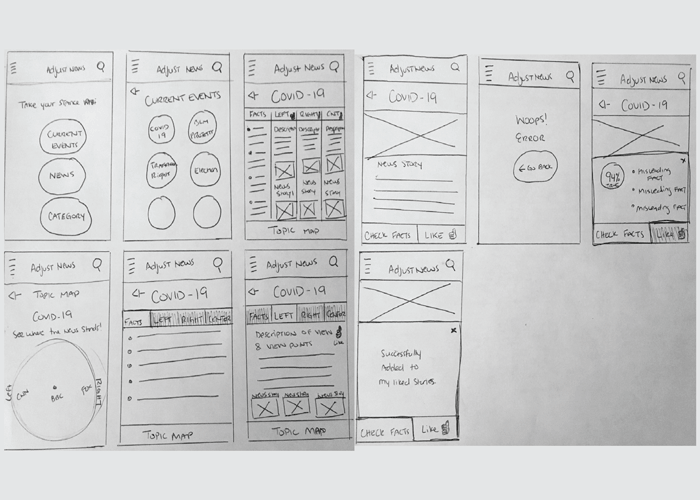 Adjust News
Take your stance
CURRENT
EVENTS
NEWS
CATEGORY
Adjust News
CURRENT EVENTS
COVID
19
BLM
PROTESTS
Right
Election
Adjust News
COVID-19
FACTS LEFT RIGHT CNTR
NEWS
STORY
NEWS
STORY
NEWS
STORY
TOPIC MAP
Adjust News
COVID-19
NEWS STORY
CHECK FACTS LIKE
Adjust News
WOOPS!
ERROR
GO BACK
Adjust News
COVID-19
94%
TRUE
x
MISLEADING
FACT
MISLEADING FACT
MISLEADING FACT
CHECK FACTS LIKE
Adjust News
TOPIC MAP
COVID-19
See where the News Stands!
Left
CNN
BBC
FOX
Right
Adjust News
COVID-19
FACTS LEFT RIGHT CENTER
TOPIC MAP
Adjust News
COVID-19
FACTS LEFT RIGHT CENTER
DESCRIPTION OF VIEW
& VIEW POINTS
Like
NEWS STORY NEWS STORY NEWS STORY
TOPIC MAP
Adjust News
x
Successfully
Added to
my liked Stories.
CHECK FACTS Like